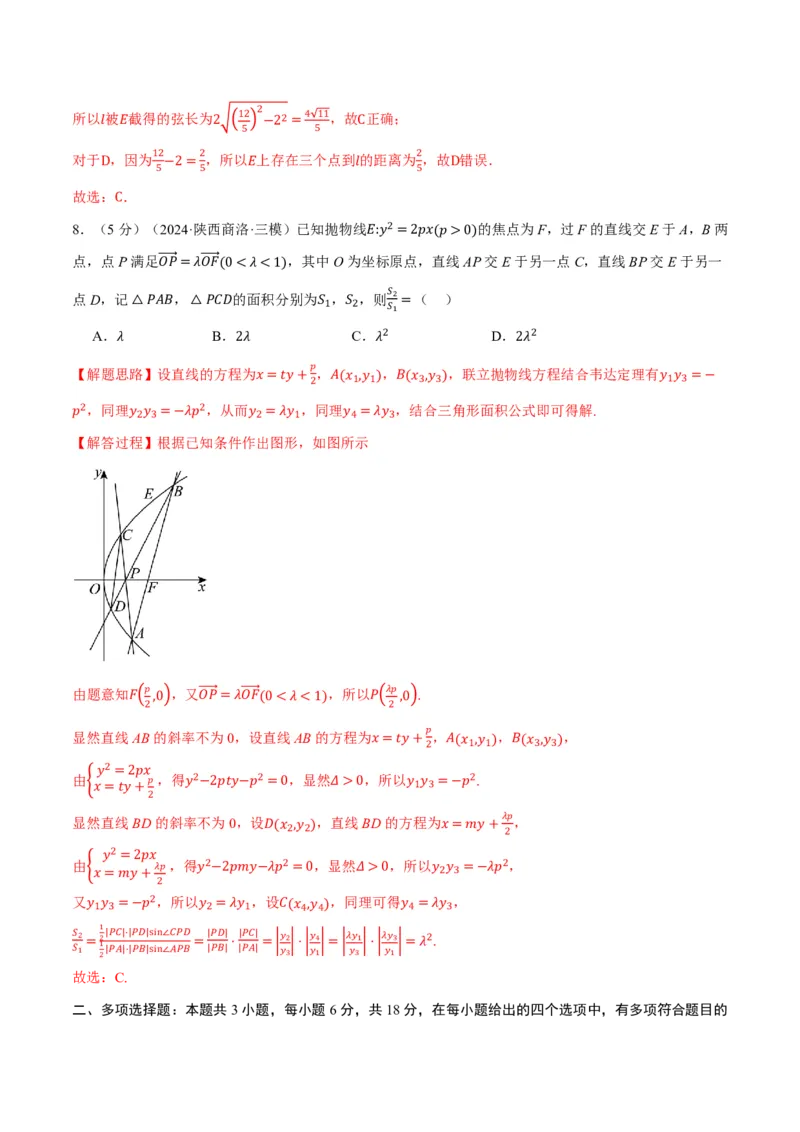 所以l被E截得的弦长为2√((12/5)²−2²) = 4√11/5，故C正确；
对于D，因为12/5−2 = 2/5，所以E上存在三个点到l的距离为2/5，故D错误．
故选：C．
8．（5 分）（2024·陕西商洛·三模）已知抛物线E:y² = 2px(p > 0)的焦点为 F，过 F 的直线交 E 于 A，B 两
点，点 P 满足OP→ = λOF→(0 < λ < 1)，其中 O 为坐标原点，直线 AP 交 E 于另一点 C，直线 BP 交 E 于另一
点 D，记 △ PAB， △ PCD的面积分别为S₁，S₂，则S₂/S₁ =（ ）
A．λ B．2λ C．λ² D．2λ²
【解题思路】设直线的方程为x = ty + p/2，A(x₁,y₁)，B(x₃,y₃)，联立抛物线方程结合韦达定理有y₁y₃ = −
p²，同理y₂y₃ = −λp²，从而y₂ = λy₁，同理y₄ = λy₃，结合三角形面积公式即可得解.
【解答过程】根据已知条件作出图形，如图所示
y
E
B
C
P
O
F
x
D
A
由题意知F(p/2,0)，又OP→ = λOF→(0 < λ < 1)，所以P(λp/2,0).
显然直线 AB 的斜率不为 0，设直线 AB 的方程为x = ty + p/2，A(x₁,y₁)，B(x₃,y₃)，
由{y² = 2px x = ty + p/2，得y²−2pty−p² = 0，显然Δ > 0，所以y₁y₃ = −p².
显然直线 BD 的斜率不为 0，设D(x₂,y₂)，直线 BD 的方程为x = my + λp/2，
由{y² = 2px x = my + λp/2，得y²−2pmy−λp² = 0，显然Δ > 0，所以y₂y₃ = −λp²，
又y₁y₃ = −p²，所以y₂ = λy₁，设C(x₄,y₄)，同理可得y₄ = λy₃，
S₂/S₁ = (1/2|PC|·|PD|sin∠CPD)/(1/2|PA|·|PB|sin∠APB) = |PD|/|PB| · |PC|/|PA| = |y₂/y₃| · |y₄/y₁| = |λy₁/y₃| · |λy₃/y₁| = λ².
故选：C.
二、多项选择题：本题共 3 小题，每小题 6 分，共 18 分，在每小题给出的四个选项中，有多项符合题目的